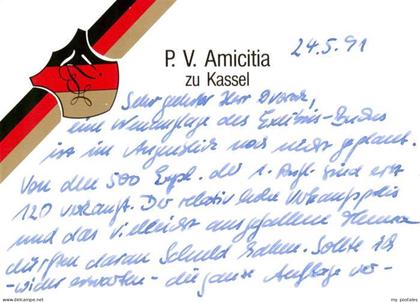 P. V. Amicitia
zu Kassel
24.5.91
Sehr geehrter Herr Dvorak,
eine Neuauflage des Exlibris-Buches
ist im Augenblick noch nicht geplant.
Von den 500 Expl. der 1. Aufl. sind erst
120 verkauft. Der relativ hohe Verkaufspreis
und das vielleicht ausgefallene Thema
dürften daran Schuld haben. Sollte ich
- wider erwarten - die ganze Auflage ver-